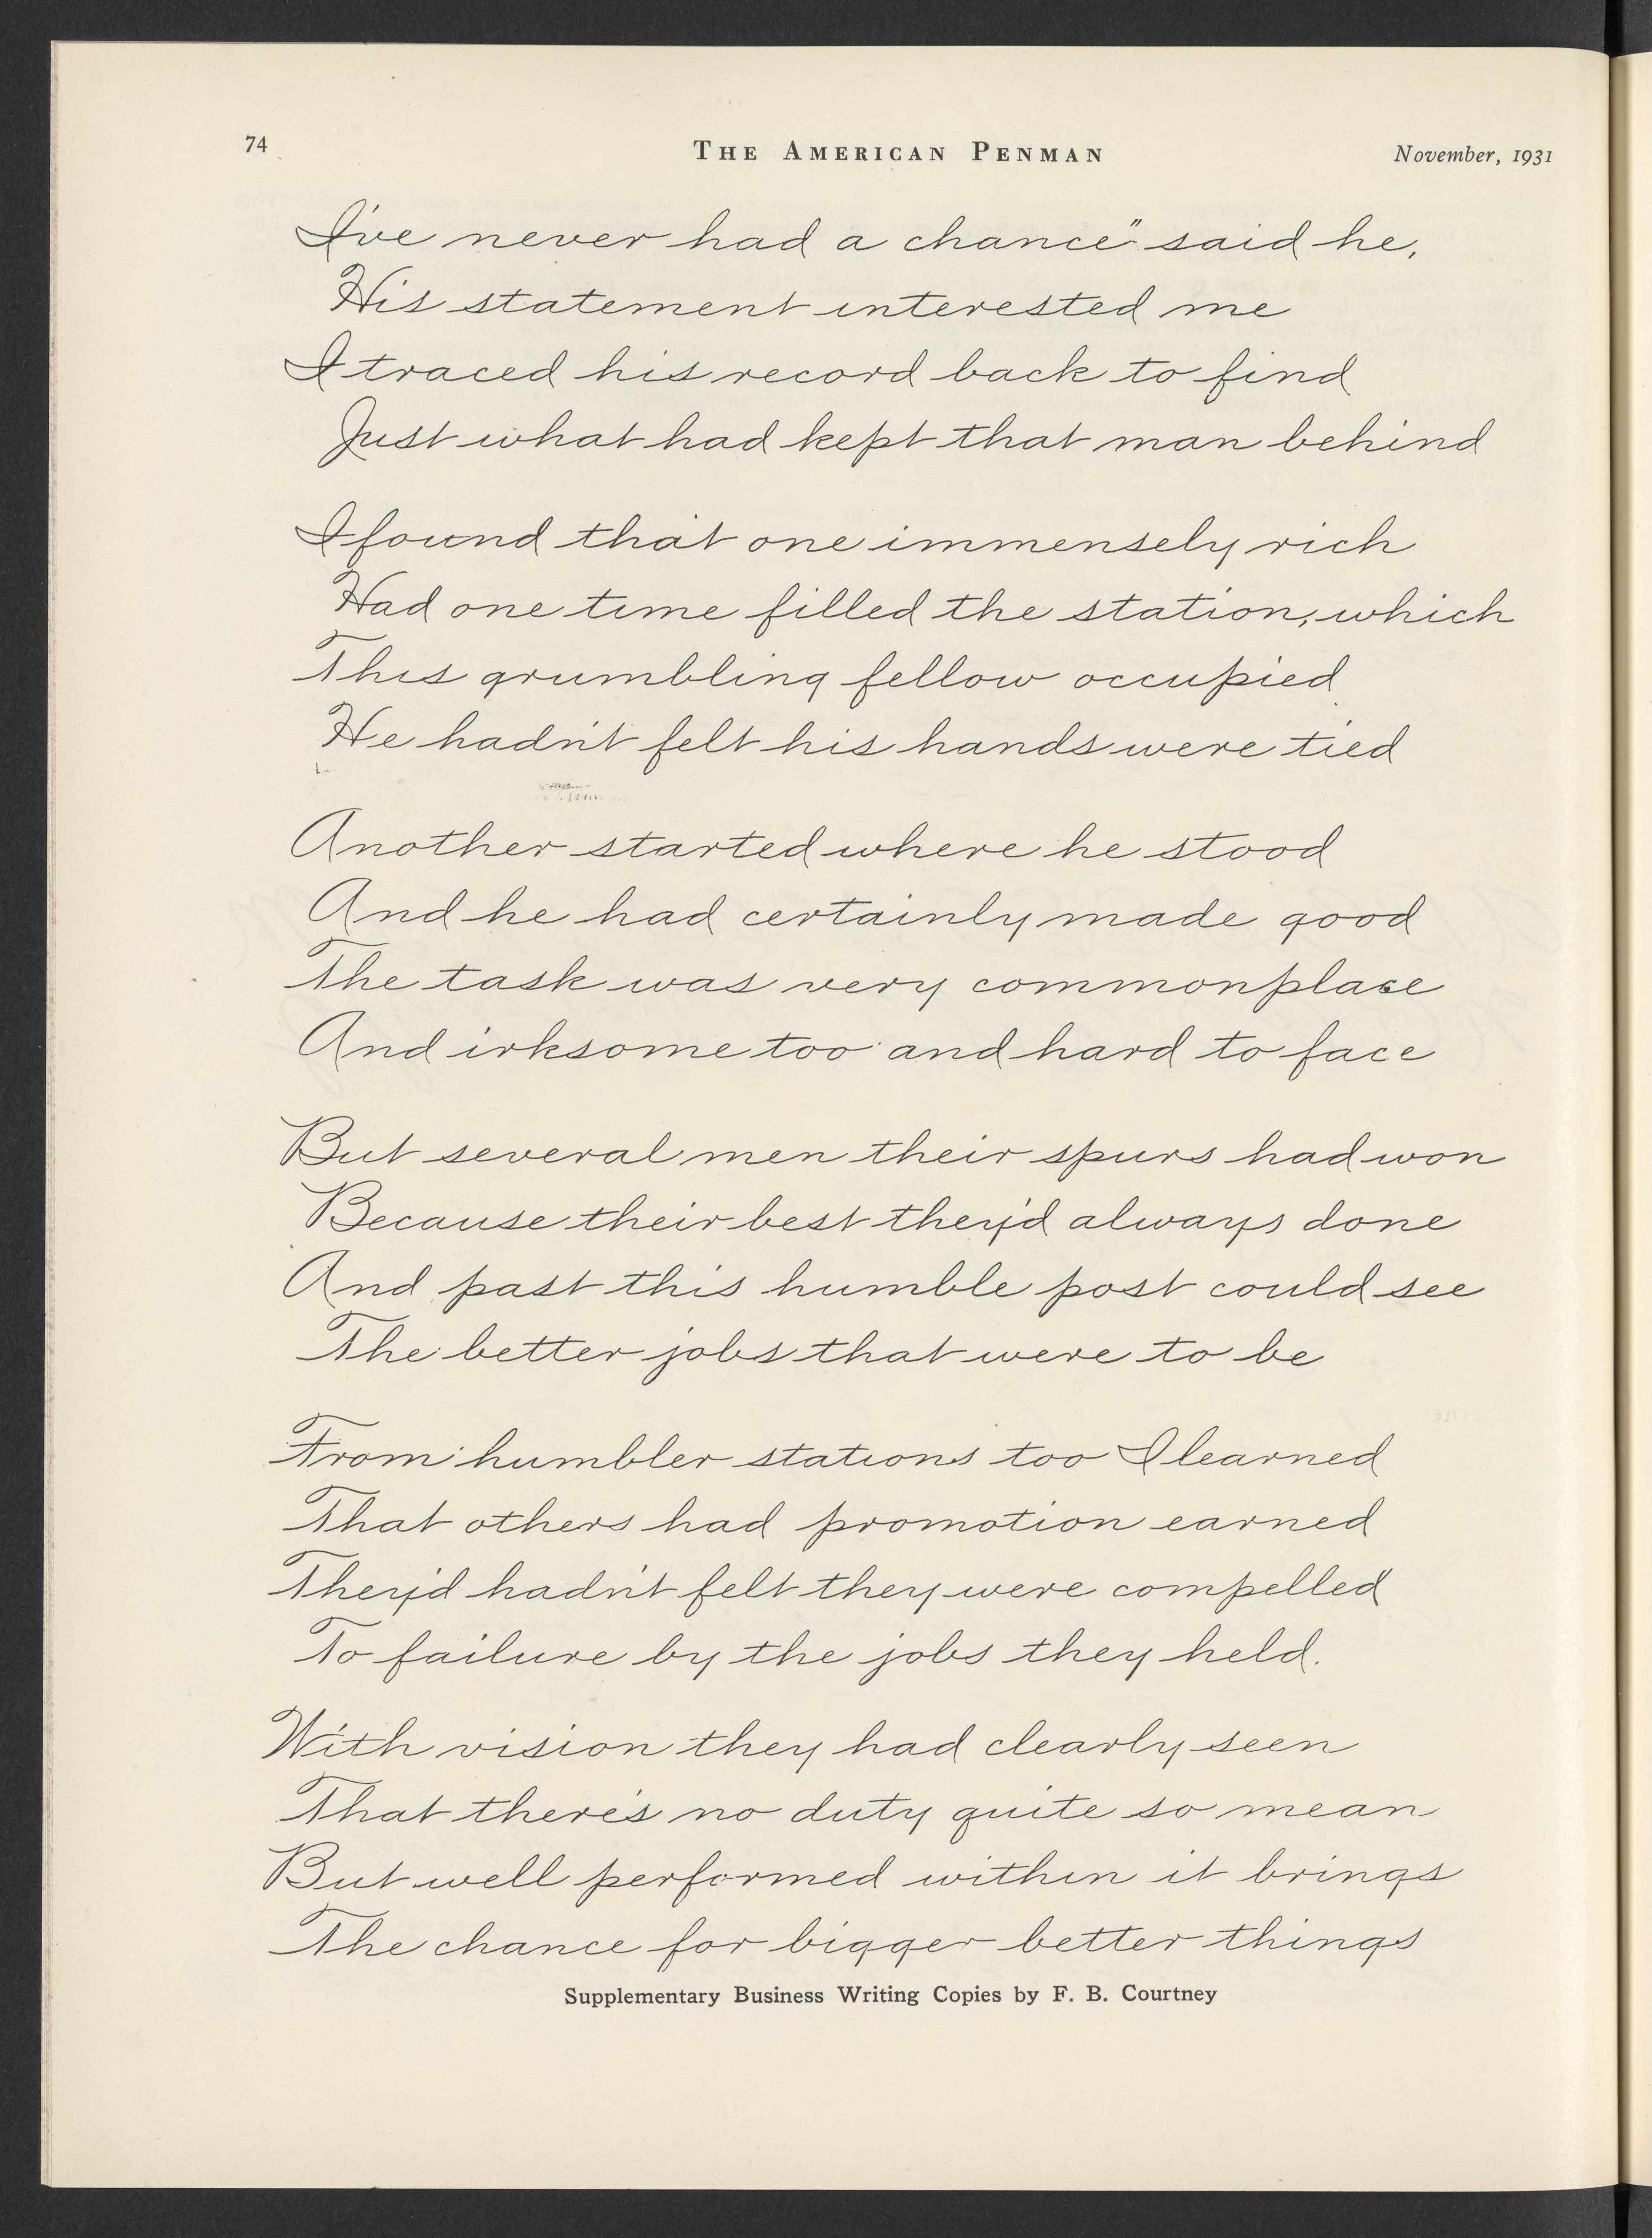 74
THE AMERICAN PENMAN
November, 1931
I've never had a chance" said he,
His statement interested me
I traced his record back to find
Just what had kept that man behind
I found that one immensely rich
Had one time filled the station, which
This grumbling fellow occupied
He hadn't felt his hands were tied
Another started where he stood
And he had certainly made good
The task was very commonplace
And irksome too and hard to face
But several men their spurs had won
Because their best they'd always done
And past this humble post could see
The better jobs that were to be
From humbler stations too I learned
That others had promotion earned
They'd hadn't felt they were compelled
To failure by the jobs they held.
With vision they had clearly seen
That there's no duty quite so mean
But well performed within it brings
The chance for bigger better things
Supplementary Business Writing Copies by F. B. Courtney